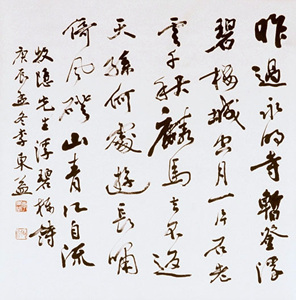 昨過永明寺暫登浮
碧樓城空月一片石老
雲千秋麟馬去不返
天孫何處遊長嘯
倚風磴山青江自流
牧隱先生浮碧樓詩
庚辰孟冬李東益